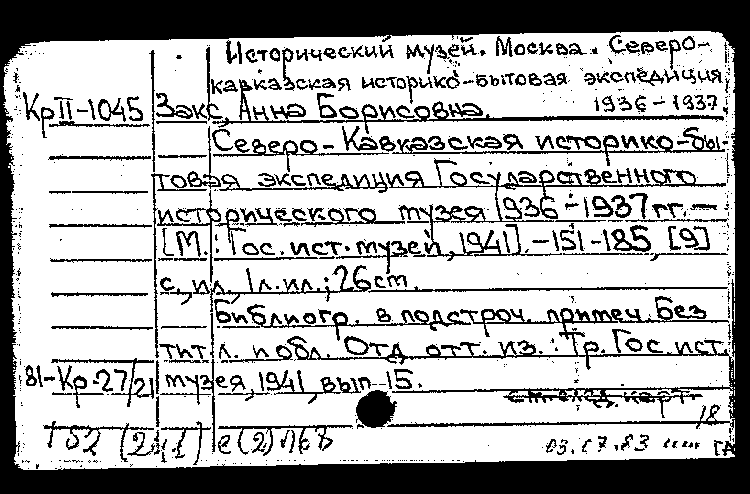 Исторический музей. Москва. Северо-
кавказская историко-бытовая экспедиция
1936-1937.
Кр II-1045 Закс, Анна Борисовна.
Северо-Кавказская историко-бы-
товая экспедиция Государственного
исторического музея 1936-1937 гг. —
[М.: Гос. ист. музей, 1941]. -151-185, [9]
с., ил., 1л. ил.; 26 см.
Библиогр. в подстроч. примеч. Без
тит. л. и обл. Отд. отт. из.: Тр. Гос. ист.
81-Кр-27/21 музея, 1941, вып 15.
см. след. карт.
18
Т52 (2Ч1) е(2)П68
03.07.83 ГА